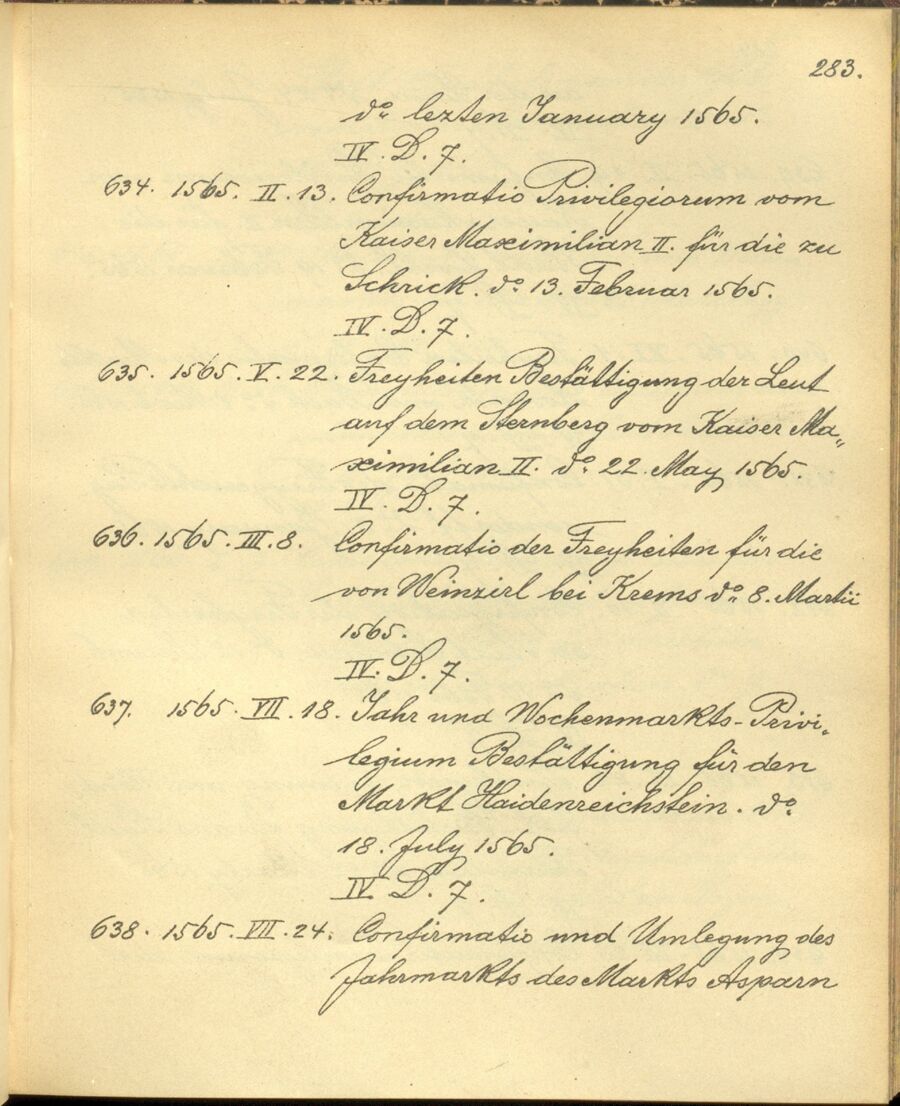 283.
do. lezten January 1565.
IV. D. 7.
634. 1565. II. 13. Confirmatio Privilegiorum vom
Kaiser Maximilian II. für die zu
Schrick. do. 13. Februar 1565.
IV. D. 7.
635. 1565. V. 22. Freyheiten Bestättigung der Leut
auf dem Sternberg vom Kaiser Ma„
ximilian II. do. 22. May 1565.
IV. D. 7.
636. 1565. III. 8. Confirmatio der Freyheiten für die
von Weinzirl bei Krems do. 8. Martii
1565.
IV. D. 7.
637. 1565. VII. 18. Jahr und Wochenmarkts-Privi„
legium Bestättigung für den
Markt Haidenreichstein. do.
18. July 1565.
IV D. 7.
638. 1565. VII. 24. Confirmatio und Umlegung des
Jahrmarkts des Markts Asparn